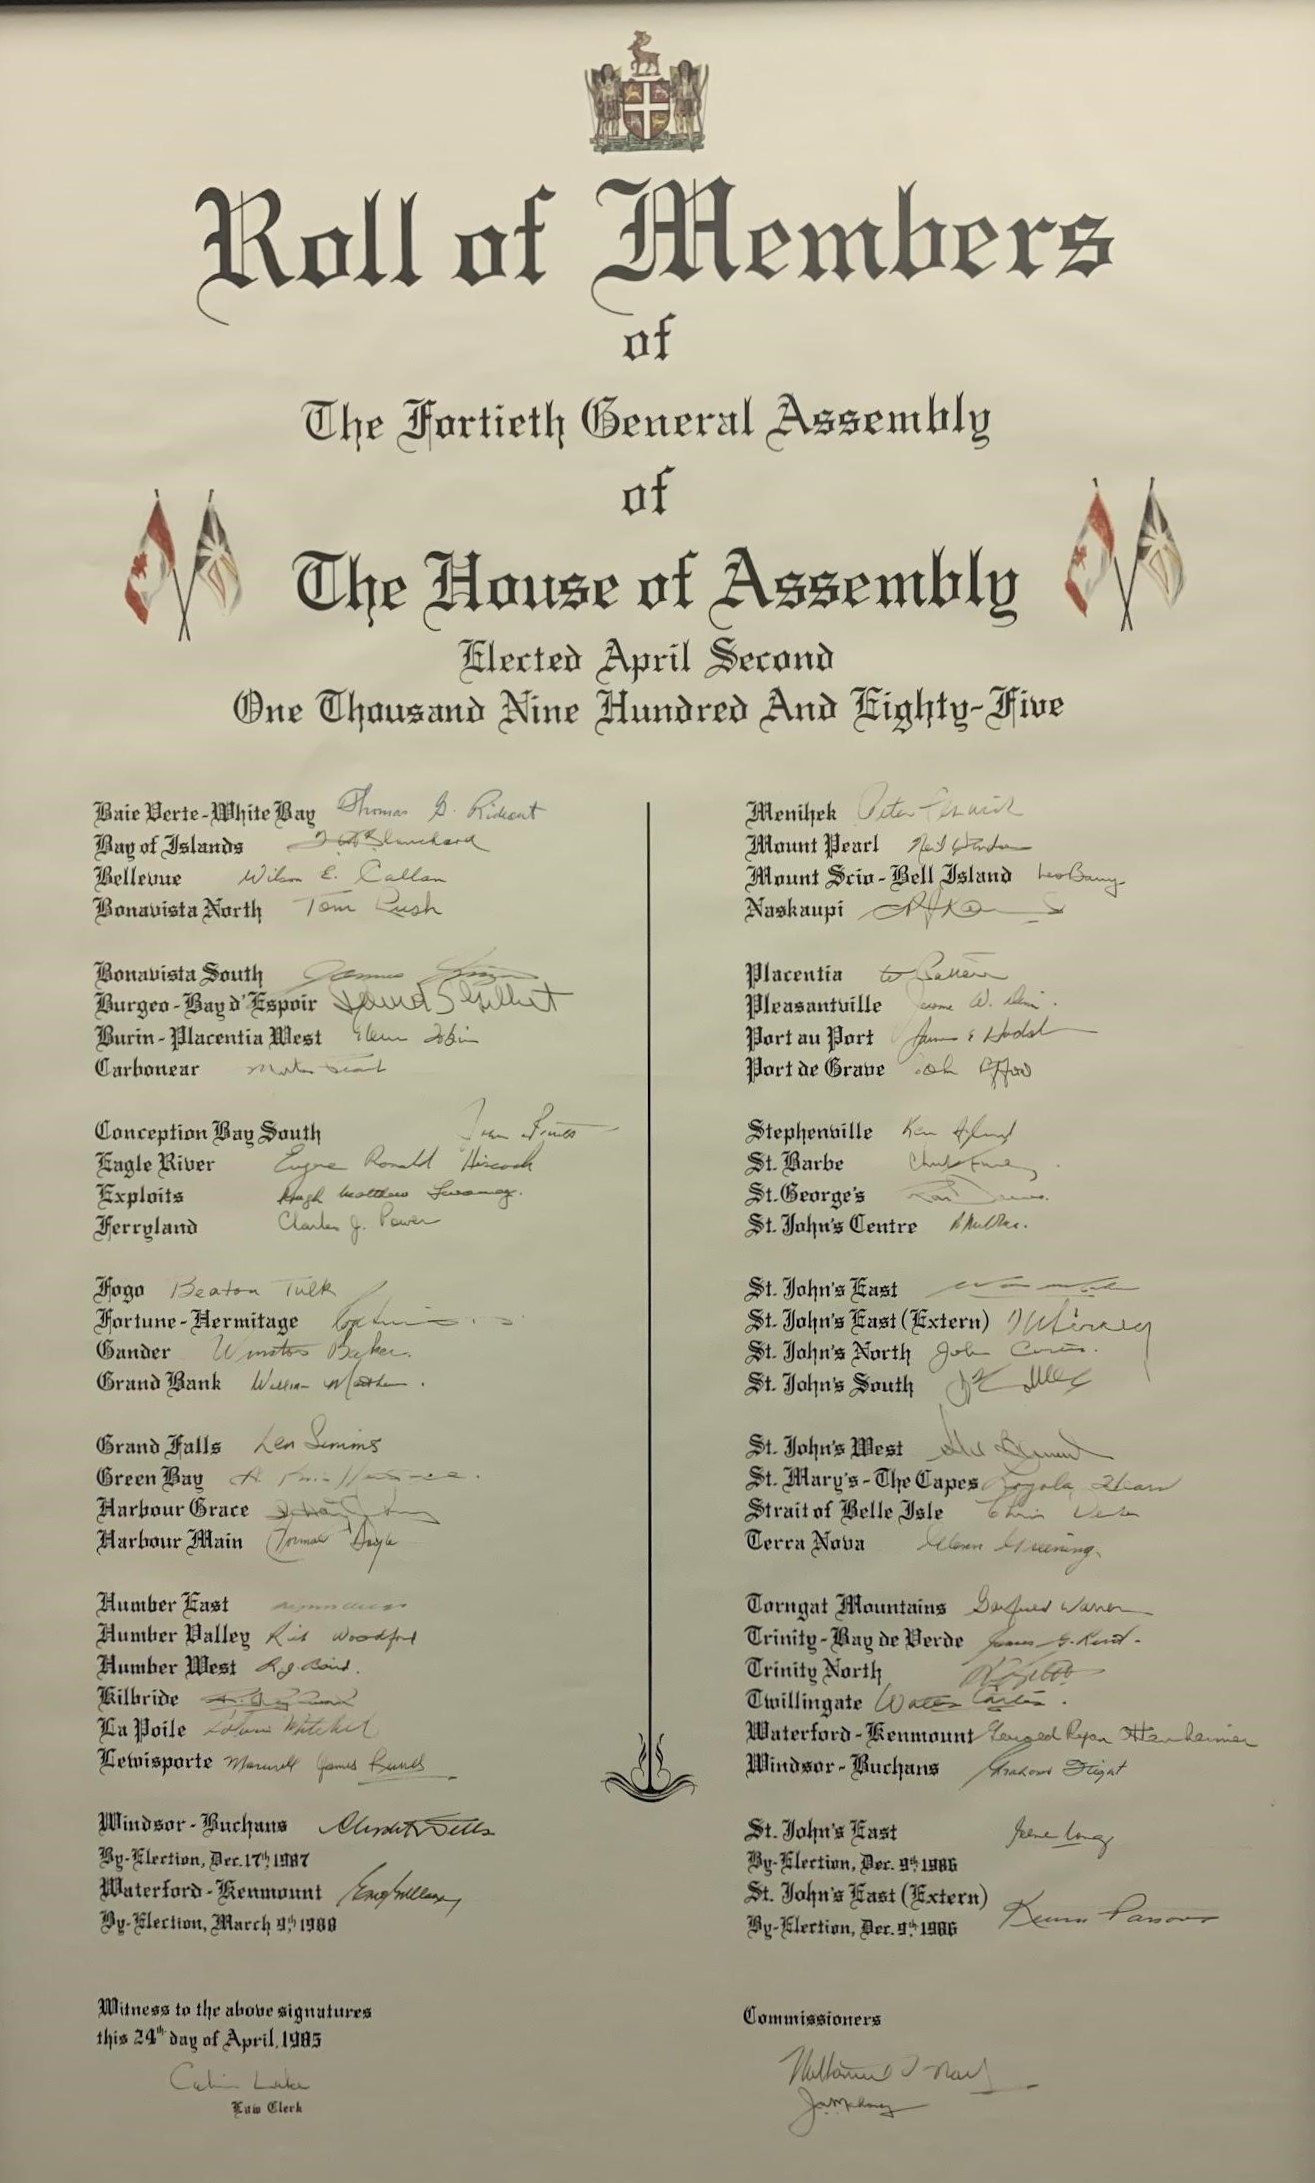 Roll of Members
of
The Fortieth General Assembly
of
The House of Assembly
Elected April Second
One Thousand Nine Hundred And Eighty-Five
Baie Verte-White Bay Thomas G. Rideout
Bay of Islands Blanchard
Bellevue Wilson E. Callan
Bonavista North Tom Lush
Bonavista South James
Burgeo-Bay d'Espoir David S Gilbert
Burin-Placentia West Glenn Tobin
Carbonear
Conception Bay South
Eagle River Eugene Ronald Hiscock
Exploits Hugh Matthew Twomey.
Ferryland Charles J. Power
Fogo Beaton Tulk
Fortune-Hermitage
Gander Winston Baker.
Grand Bank William Matthews.
Grand Falls Len Simms
Green Bay
Harbour Grace
Harbour Main Norman Doyle
Humber East
Humber Valley Rick Woodford
Humber West R.J. Baird.
Kilbride
La Poile Mitchell
Lewisporte Maxwell James Russell
Windsor-Buchans
By-Election, Dec. 17th, 1987
Waterford-Kenmount
By-Election, March 9th, 1988
Witness to the above signatures
this 24th day of April, 1985
Law Clerk
Menihek Peter Fenwick
Mount Pearl Neil Windsor
Mount Scio-Bell Island Leo Barry
Naskaupi
Placentia W Patterson
Pleasantville Jerome W. Dinn.
Port au Port James E Hodder
Port de Grave John Efford
Stephenville Ken Aylward
St. Barbe Chuck Furey
St. George's Ron Dawe.
St. John's Centre
St. John's East
St. John's East (Extern)
St. John's North John Carter.
St. John's South
St. John's West
St. Mary's-The Capes Loyola Hearn
Strait of Belle Isle Chris Decker
Terra Nova Glenn Greening.
Torngat Mountains Garfield Warren
Trinity-Bay de Verde James G. Reid.
Trinity North
Twillingate Walter Carter.
Waterford-Kenmount Gerald Ryan Ottenheimer
Windsor-Buchans Graham Flight
St. John's East Gene Long
By-Election, Dec. 9th, 1986
St. John's East (Extern) Kevin Parsons
By-Election, Dec. 9th, 1986
Commissioners